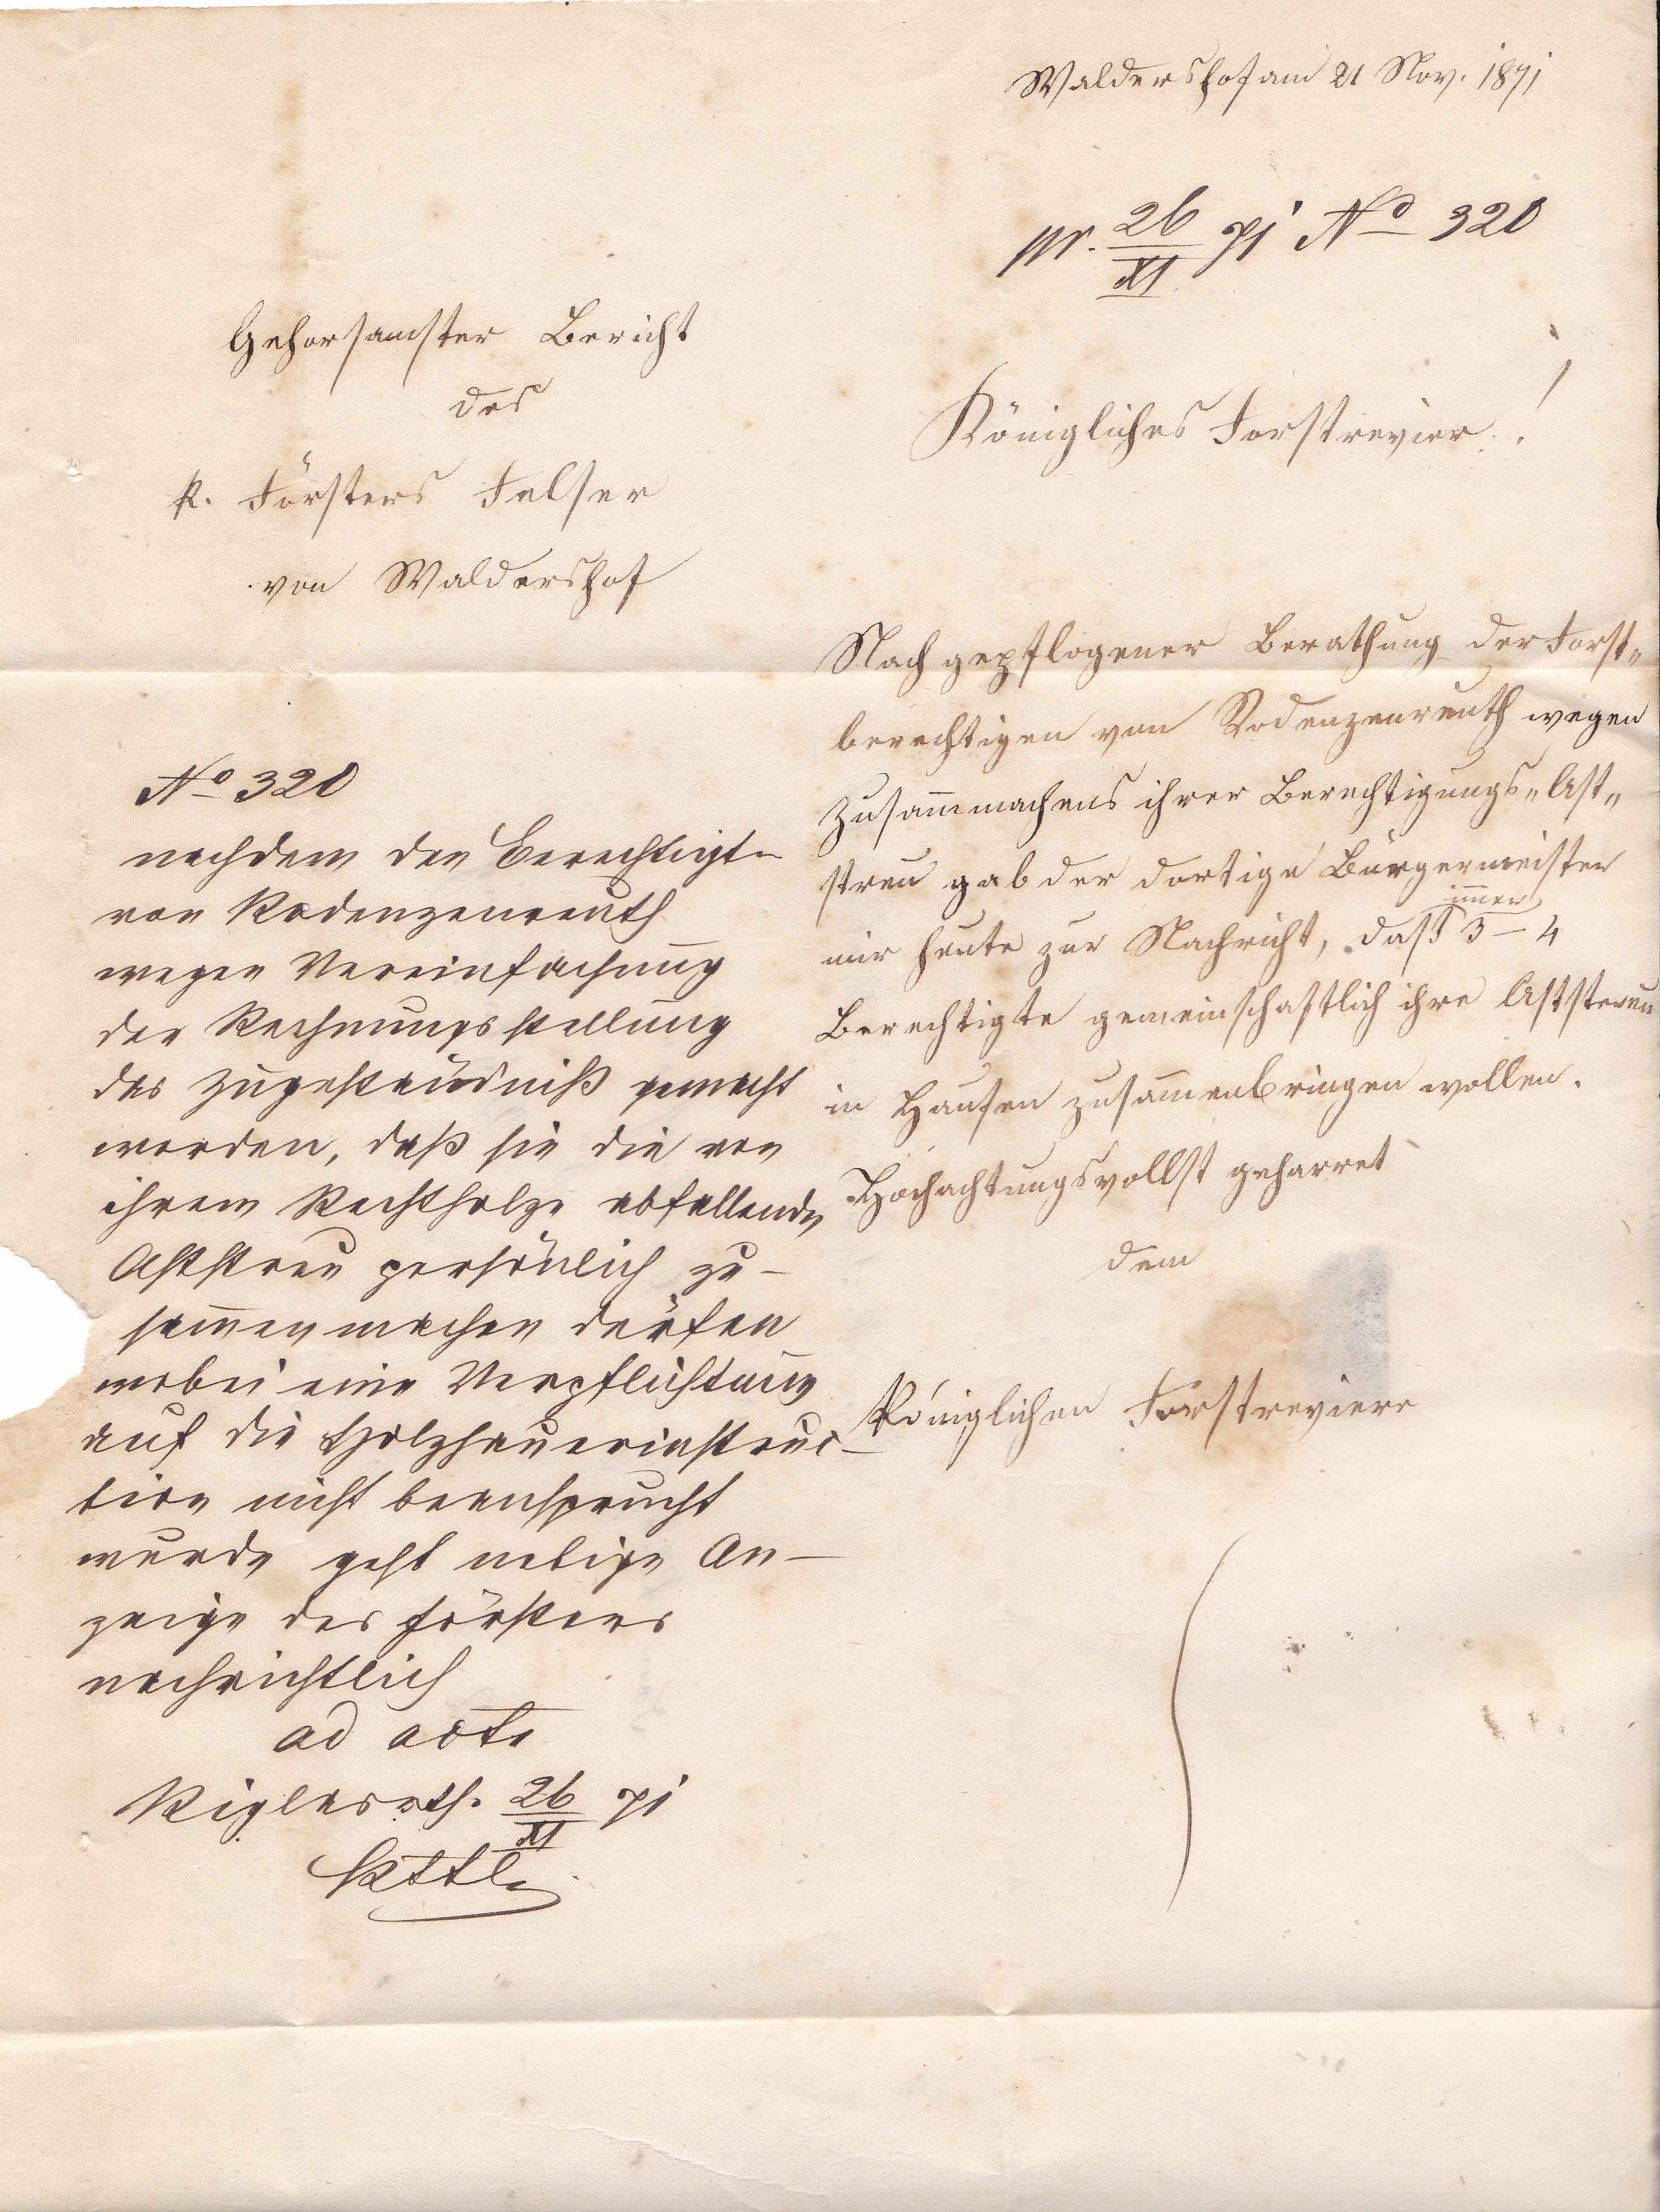 Waldershof am 21 Nov. 1871
pr. 26/XI 71 No 320
Gehorsamster Bericht
des
k. Försters Felser
von Waldershof
Königliches Forstrevier!
Nach gepflogener Berathung der Forst„
berechtigen von Rodenzenreuth wegen
Zusam̅machens ihrer Berechtigungs„Ast„
streu gab der dortige Bürgermeister
mir heute zur Nachricht, daß im̅er 3–4
Berechtigte gemeinschaftlich ihre Aststreu
in Haufen zusam̅enbringen wollen.
Hochachtungsvollst geharret
dem
Königlichen Forstreviere
No 320
nachdem den Berechtigten
von Rodenzenreuth
wegen Vereinfachung
der Rechnungsstellung
das Zugeständniß gemacht
worden, daß sie die von
ihrem Rechtholze abfallende
Aststreu persönlich zu-
sam̅enmachen dürfen
wobei eine Verpflichtung
auf die Holzhauerinstruc-
tion nicht beansprucht
wurde geht nebige An-
zeige des Försters
nachrichtlich
ad acta
Riglasrth. 26/XI 71